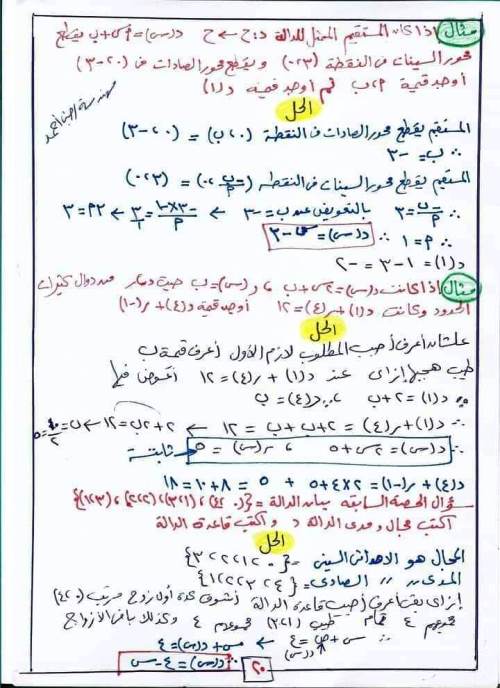 مثال إذا كان المستقيم الممثل للدالة د: ح ← ح د(س) = أس + ب يقطع
محور السينات فى النقطة (٣، ٠) ويقطع محور الصادات فى (٠، -٣)
أوجد قيمة أ، ب ثم أوجد قيمة د(١)
الحل
المستقيم يقطع محور الصادات فى النقطة (٠، ب) = (٠، -٣)
∴ ب = -٣
المستقيم يقطع محور السينات فى النقطة (-ب/أ، ٠) = (٣، ٠)
∴ -ب/أ = ٣ بالتعويض عن ب = -٣ ← -٣×-١/أ = ٣/١ ← ٣أ = ٣
∴ أ = ١ ∴ د(س) = س - ٣
د(١) = ١ - ٣ = -٢
مثال إذا كانت د(س) = ٢س + ب، ر(س) = ب حيث د، ر دوال كثيرات
الحدود وكانت د(١) + ر(٤) = ١٢ أوجد قيمة د(٤) + ر(-١)
الحل
علشان أعرف أجيب المطلوب لازم الأول أعرف قيمة ب
طيب هجيبها إزاى عند د(١) + ر(٤) = ١٢ أعوض فيها
د(١) = ٢ + ب، ر(٤) = ب
∴ د(١) + ر(٤) = ٢ + ب + ب = ١٢ ← ٢ + ٢ب = ١٢ ← ب = ١٠/٢ = ٥
∴ د(س) = ٢س + ٥، ر(س) = ٥ ثابتة
د(٤) + ر(-١) = ٢×٤ + ٥ + ٥ = ٨ + ١٠ = ١٨
سؤال الحصة السابقة بيان الدالة = {(٠، ٤)، (١، ٣)، (٢، ٢)، (٣، ١)}
اكتب مجال ومدى الدالة د واكتب قاعدة الدالة
الحل
المجال هو الإحداثى السينى = {٠، ١، ٢، ٣}
المدى // // الصادى = {٤، ٣، ٢، ١}
إزاى بقى أعرف أجيب قاعدة الدالة أشوف كدة أول زوج مرتب (٠، ٤)
مجموعهم ٤ تمام طيب (١، ٣) مجموعهم ٤ وكذلك باقى الأزواج
∴ س + ص = ٤ ← س + د(س) = ٤
د(س)
∴ د(س) = ٤ - س
٢٠